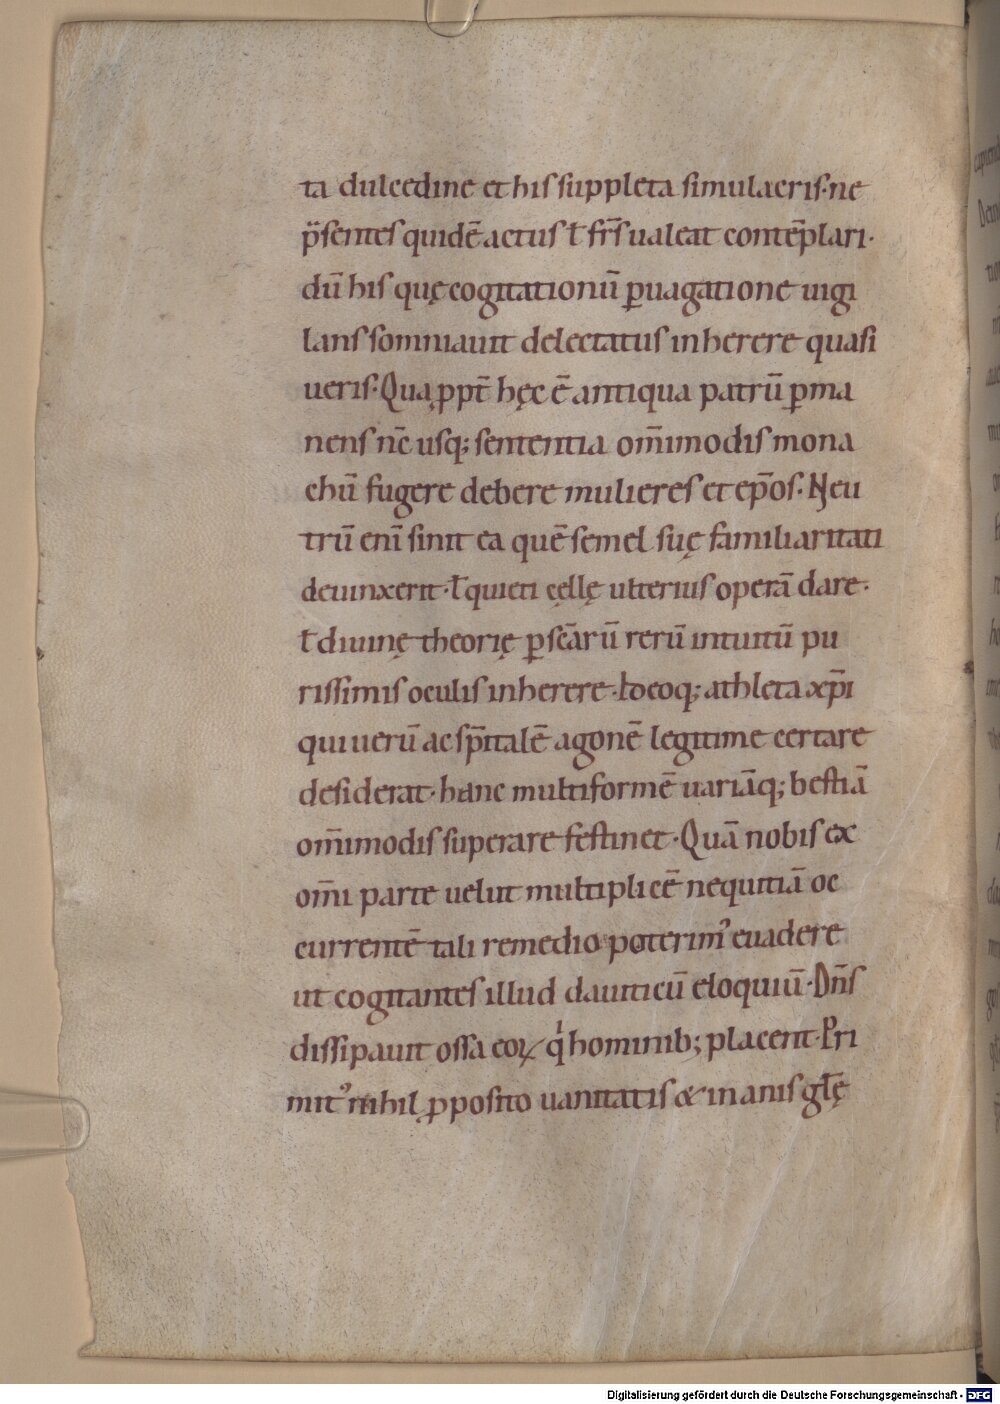 ta dulcedine et his suppleta simulacris·ne
p̈sentes quidē actus ƚ fr̄s ualeat contēplari·
dū his quę cogitationū ꝑuagatione uigi
lans somniauit delectatus inherere quasi
ueris·Qua ꝓpt̄ hęc ē antiqua patrū ꝑma
nens nc̄ usq; sententia om̄imodis mona
chū fugere debere mulieres et ep̄os·Neu
trū enī sinit ea quē semel suę familiaritati
deuinxerit·ƚ quieti cęllę ulterius operā dare·
ƚ diuinę theorię ꝑ sc̄arū rerū intuitū pu
rissimis oculis inherere·Idcoq; athleta xp̄i
qui uerū ac sp̄italē agonē legitime certare
desiderat·hanc multiformē uariāq; bestiā
om̄imodis superare festinet·Quā nobis ex
om̄i parte uelut multiplicē nequitiā oc
currentē tali remedio poterim᾿ euadere
ut cogitantes illud dauiticū eloquiū·Dn̄s
dissipauit ossa eoꝝ qͥ hominib; placent·Pri
mit᾿ nihil ꝓposito uanitatis & inanis gƚę
Digitalisierung gefördert durch die Deutsche Forschungsgemeinschaft - DFG